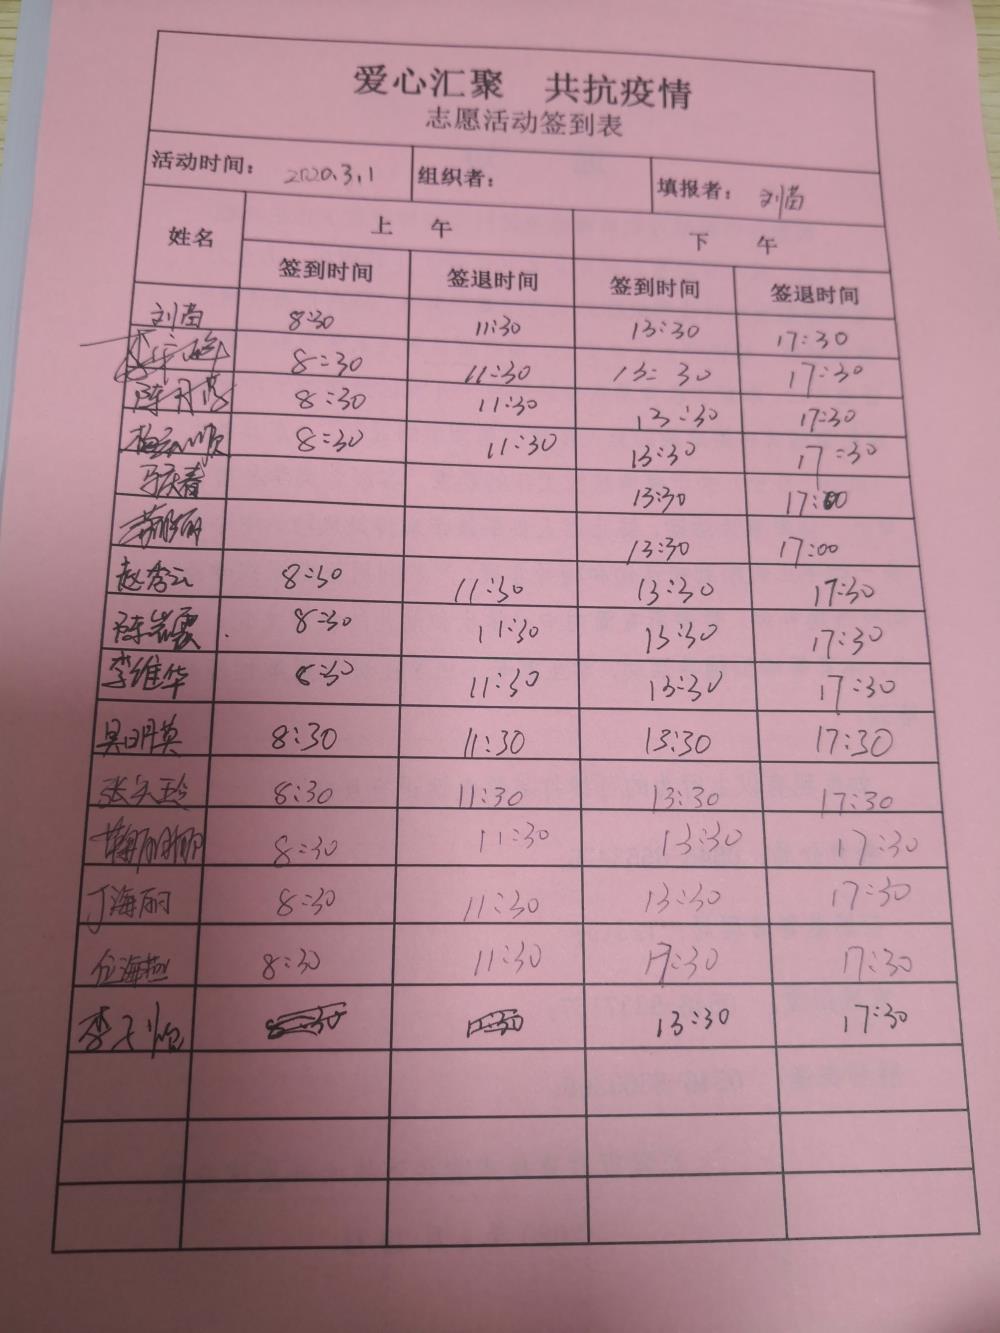 爱心汇聚 共抗疫情
志愿活动签到表
活动时间： 2020.3.1 组织者： 填报者： 刘苗
姓名 上 午 下 午
签到时间 签退时间 签到时间 签退时间
刘苗 8:30 11:30 13:30 17:30
8:30 11:30 13:30 17:30
陈 8:30 11:30 13:30 17:30
8:30 11:30 13:30 17:30
马天春 13:30 17:00
13:30 17:00
赵秀云 8:30 11:30 13:30 17:30
陈岩霞 8:30 11:30 13:30 17:30
李维华 8:30 11:30 13:30 17:30
吴明英 8:30 11:30 13:30 17:30
张文玲 8:30 11:30 13:30 17:30
8:30 11:30 13:30 17:30
丁海丽 8:30 11:30 13:30 17:30
任海燕 8:30 11:30 17:30 17:30
李子怡 8:30 11:30 13:30 17:30